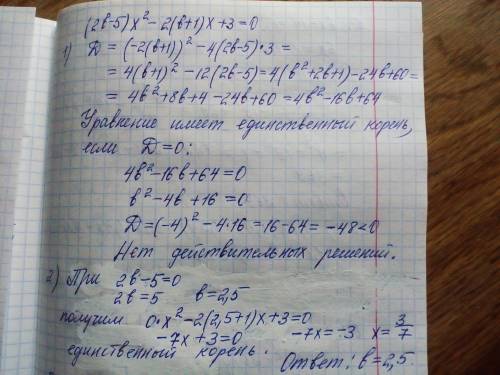 (2в-5)x² - 2(в+1)x + 3 = 0
1) D = (-2(в+1))² - 4(2в-5)·3 =
= 4(в+1)² - 12(2в-5) = 4(в²+2в+1) - 24в + 60 =
= 4в² + 8в + 4 - 24в + 60 = 4в² - 16в + 64
Уравнение имеет единственный корень,
если D = 0:
4в² - 16в + 64 = 0
в² - 4в + 16 = 0
D = (-4)² - 4·16 = 16 - 64 = -48 < 0
Нет действительных решений.
2) При 2в - 5 = 0
2в = 5 в = 2,5
получим 0·x² - 2(2,5+1)x + 3 = 0
-7x + 3 = 0 -7x = -3 x = 3/7
единственный корень. Ответ: в = 2,5.